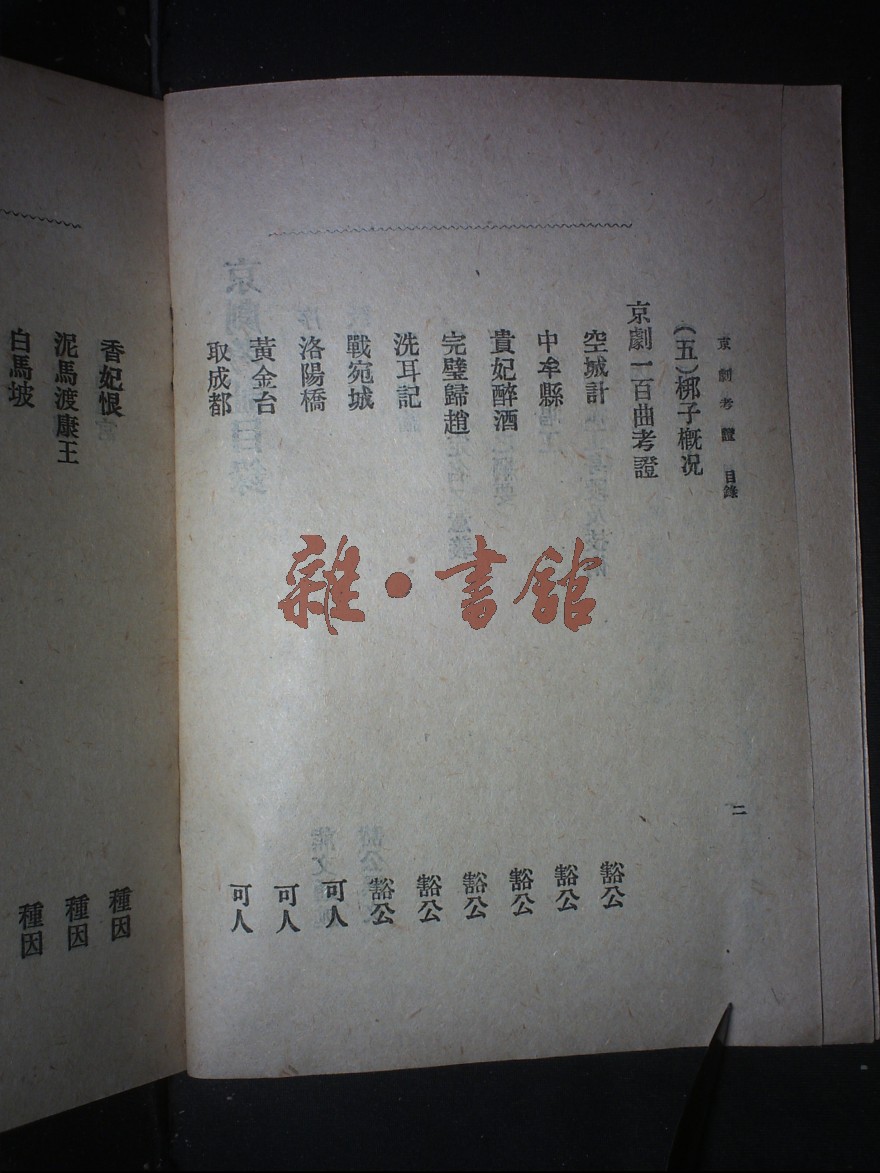 京劇考證 目錄 二
(五)梆子概况
京劇一百曲考證
空城計 豁公
中牟縣 豁公
貴妃醉酒 豁公
完璧歸趙 豁公
洗耳記 豁公
戰宛城 豁公
洛陽橋 可人
黃金台 可人
取成都 可人
香妃恨 種因
泥馬渡康王 種因
白馬坡 種因
雜·書館